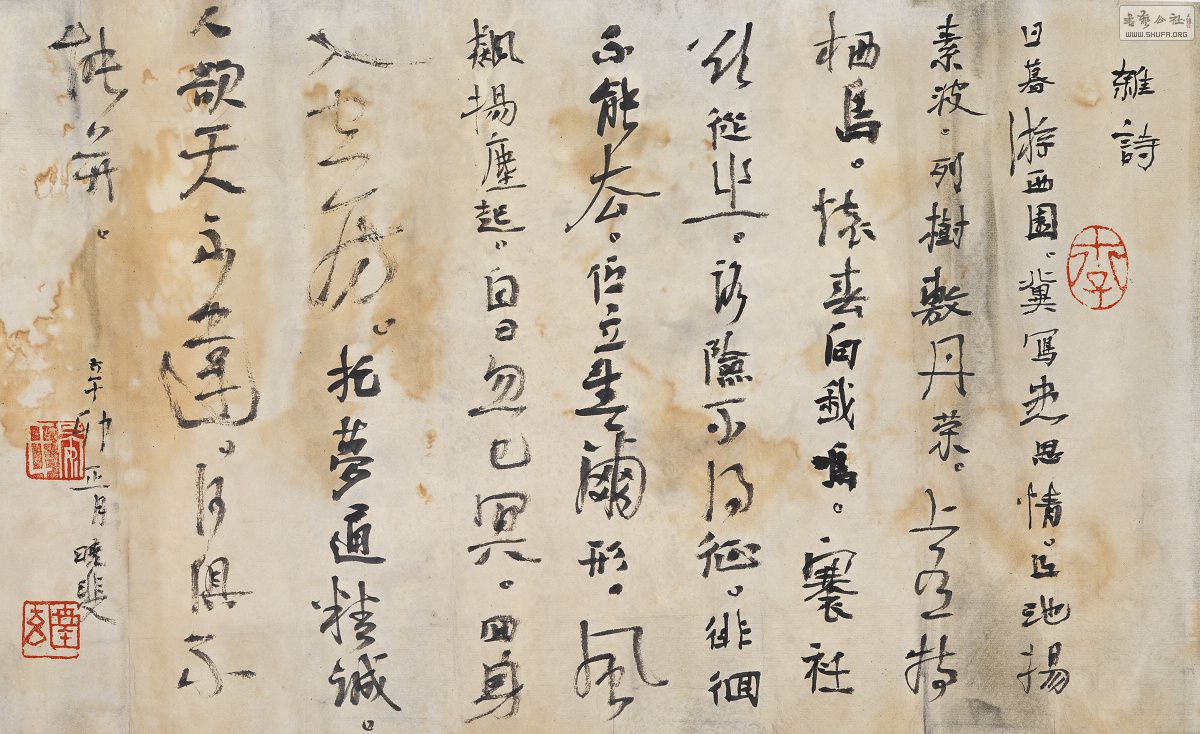 雜詩
日暮游西園。冀寫愁思情。曲池揚
素波。列樹敷丹荣。上有特
栖鳥。懷春向我鳴。褰衽
欲從之。路險不得征。徘徊
不能去。伫立望爾形。風
飆揚塵起。白日忽已冥。回身
入空房。托夢通精誠。
人欲天不違。何惧不
并。
正月
李
书艺公社
WWW.SHUFA.ORG